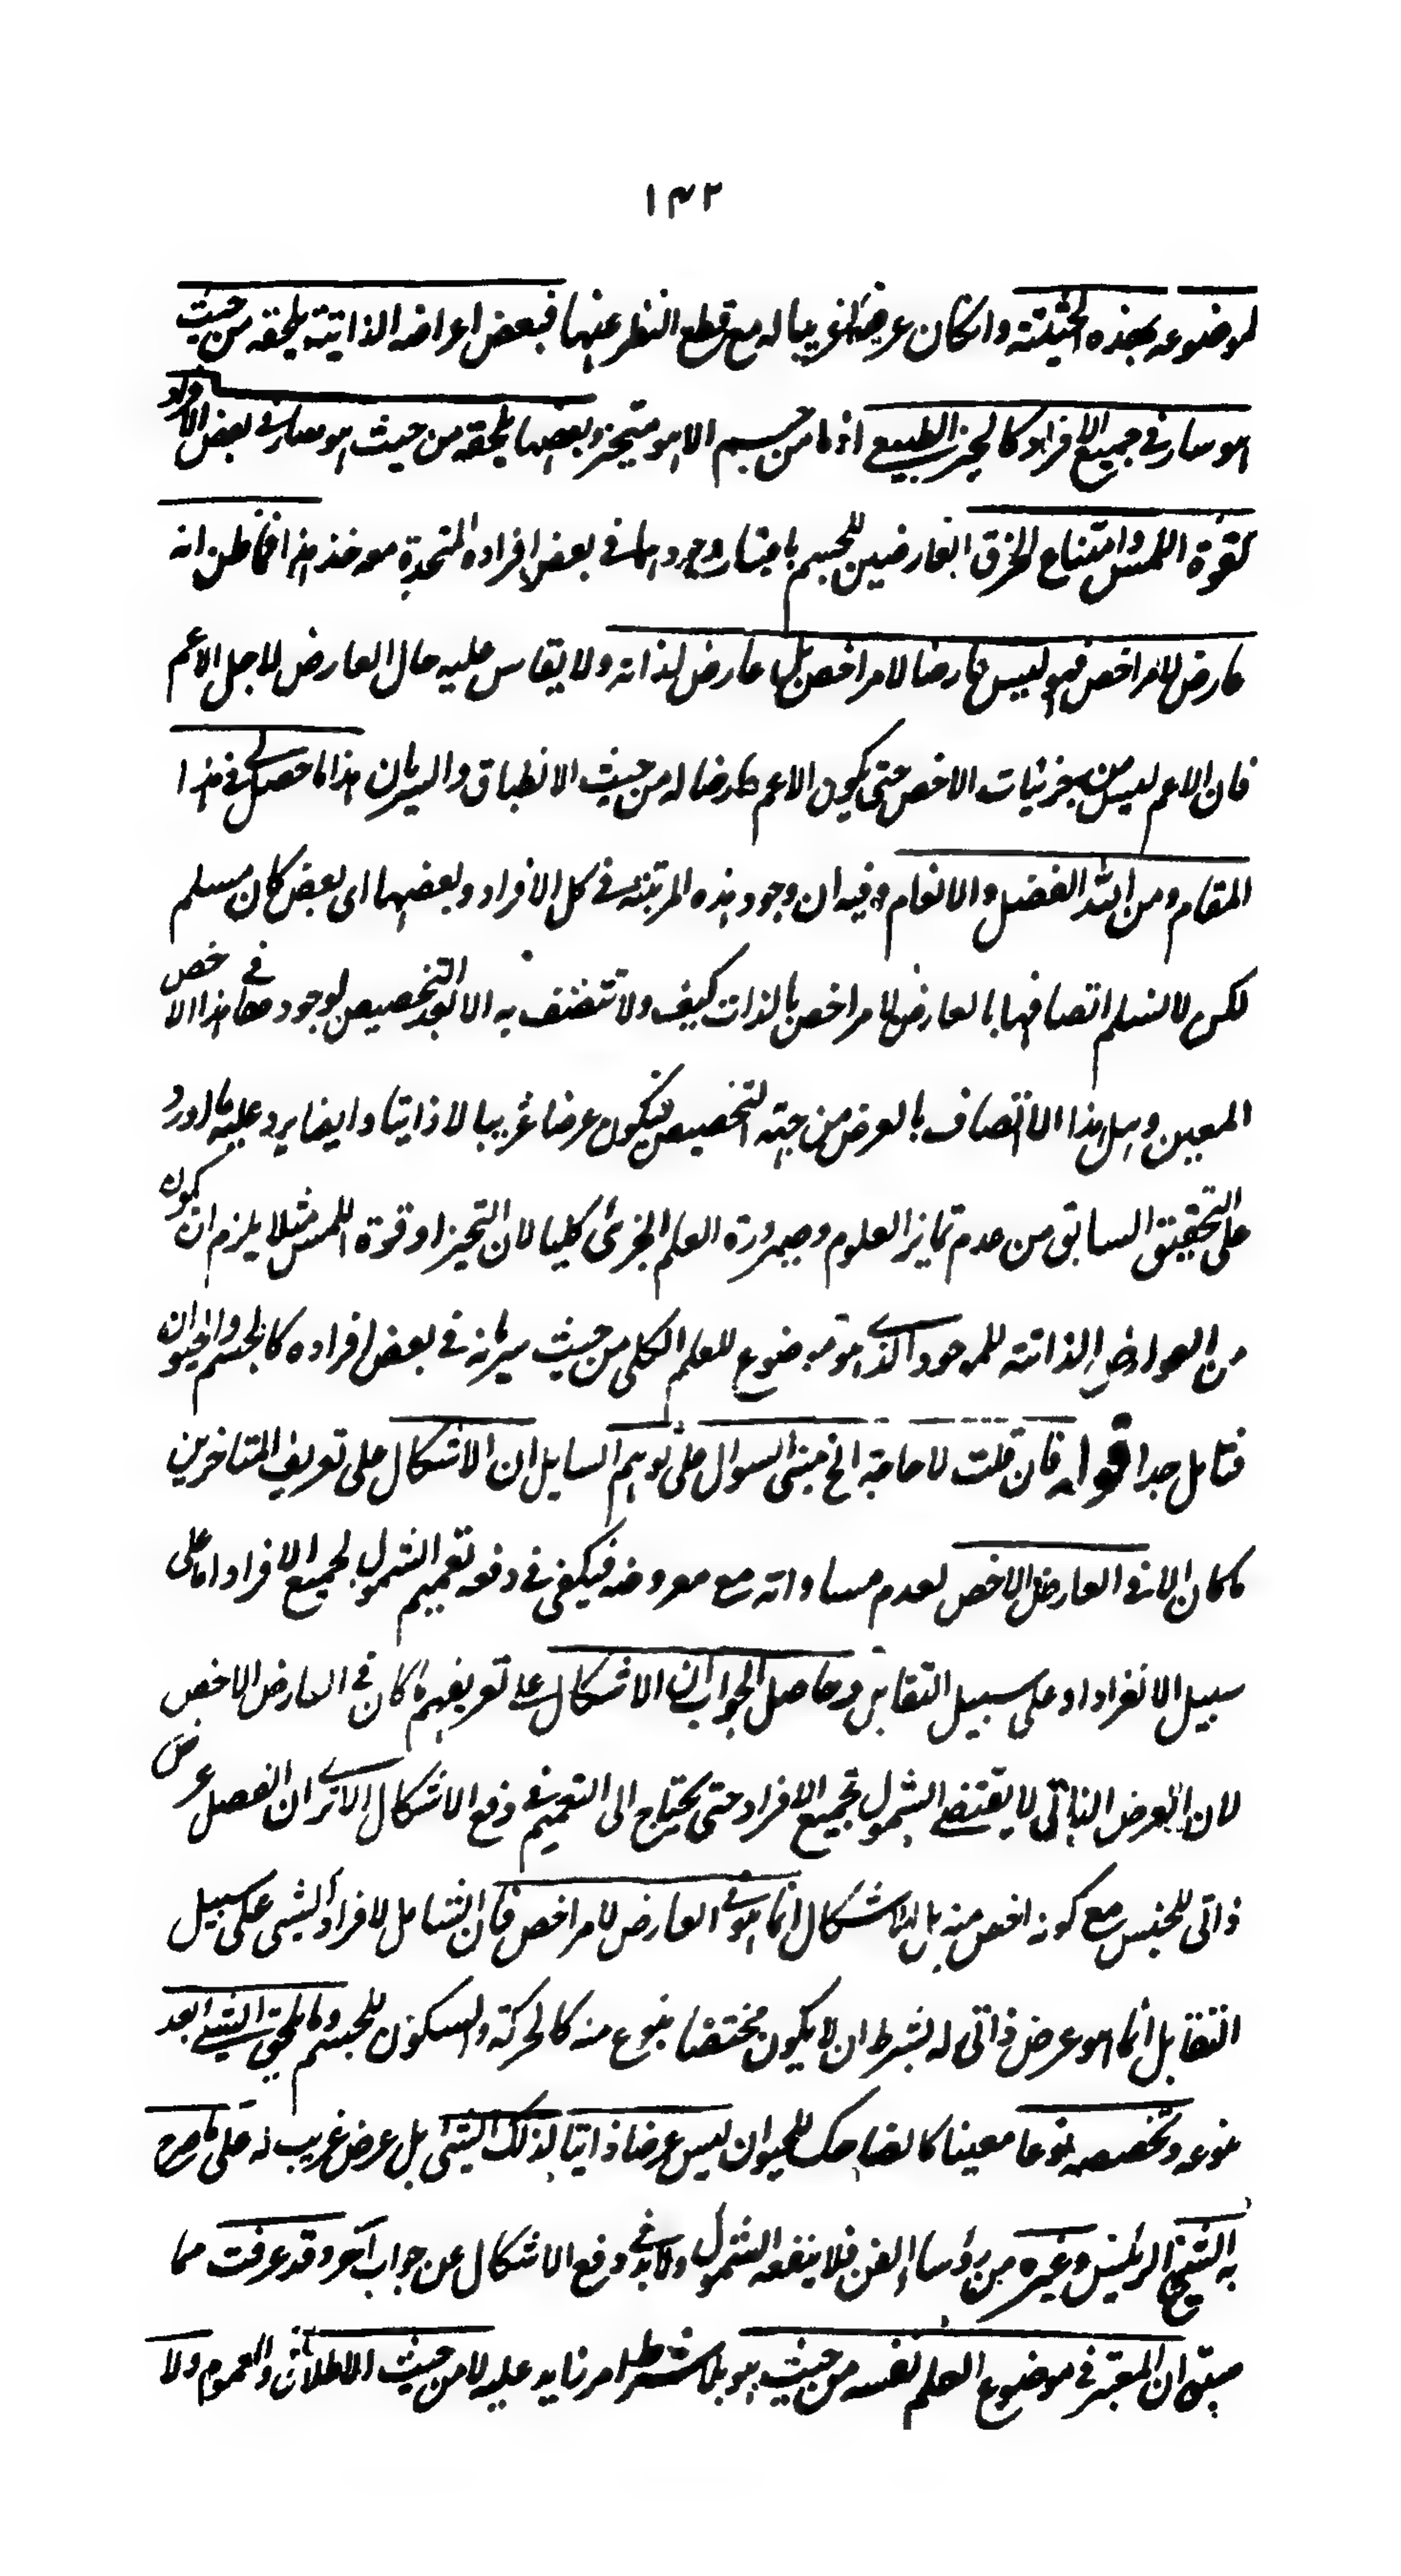 ١٤٢
لموضوعه بهذه الحيثية وان كان عرضا غريبا له مع قطع النظر عنها فبعض اعراضه الذاتية يلحقه من حيث
هو سار في جميع الافراد كالحيز الطبيعي اذ ما من جسم الا هو متحيز وبعضها يلحقه من حيث هو سار في بعض الافراد
كقوة اللمس وامتناع الخرق العارضين للجسم باعتبار وجودهما في بعض افراده المتحدة معه فذا هذا فما ظن انه
عارض لامر اخص فهو ليس عارضا لامر اخص بل عارض لذاته ولا يقاس عليه حال العارض لاجل الاعم
فان الاعم ليس من جزئيات الاخص حتى يكون الاعم عارضا له من حيث الانطباق والسريان هذا ما حصل لي في هذا
المقام ومن الله الفضل والانعام وفيه ان وجود هذه المرتبة في كل الافراد وبعضها اى بعض كان مسلم
لكن لا نسلم اتصافها بالعارض لامر اخص بالذات كيف ولا تتصف به الا بعد التخصيص لوجودها في هذا الاخص
المعين وهل هذا الا اتصاف بالعرض من جهة التخصيص فيكون عرضا غريبا لا ذاتيا وايضا يرد عليه ما اورد
على التحقيق السابق من عدم تمايز العلوم وصيرورة العلم الجزئى كليا لان التحيز او قوة اللمس مثلا يلزم ان يكون
من العوارض الذاتية للموجود الذي هو موضوع للعلم الكلى من حيث سريانه في بعض افراده كالجسم والحيوان
فتامل جدا قوله فان قلت لا حاجة الخ مبنى السوال على توهم السايل ان الاشكال على تعريف المتاخرين
ما كان الا في العارض الاخص لعدم مساواته مع معروضه فيكفى في دفعه تعميم الشمول لجميع الافراد اما على
سبيل الانفراد او على سبيل التقابل وحاصل الجواب ان الاشكال على تعريفهم ما كان في العارض الاخص
لان العرض الذاتى لا يقتضي الشمول لجميع الافراد حتى يحتاج الى التعميم في دفع الاشكال الا ترى ان الفصل عرض
ذاتى للجنس مع كونه اخص منه بل الاشكال انما هو في العارض لامر اخص فان الشامل لافراد الشى على سبيل
التقابل انما هو عرض ذاتى له بشرط ان لا يكون مختصا بنوع منه كالحركة والسكون للجسم وما يلحق الشي بعد
نوعه وتخصصه نوعا معينا كالضاحك للحيوان ليس عرضا ذاتيا لذلك الشئ بل عرض غريب له على ما صرح
به الشيخ الرئيس وغيره من رؤساء الفن فلا ينفعه الشمول ولا بد في دفع الاشكال عن جواب آخر وقد عرفت مما
سبق ان المعتبر في موضوع العلم نفسه من حيث هو بلا شرط امر زايد عليه لا من حيث الاطلاق والعموم ولا